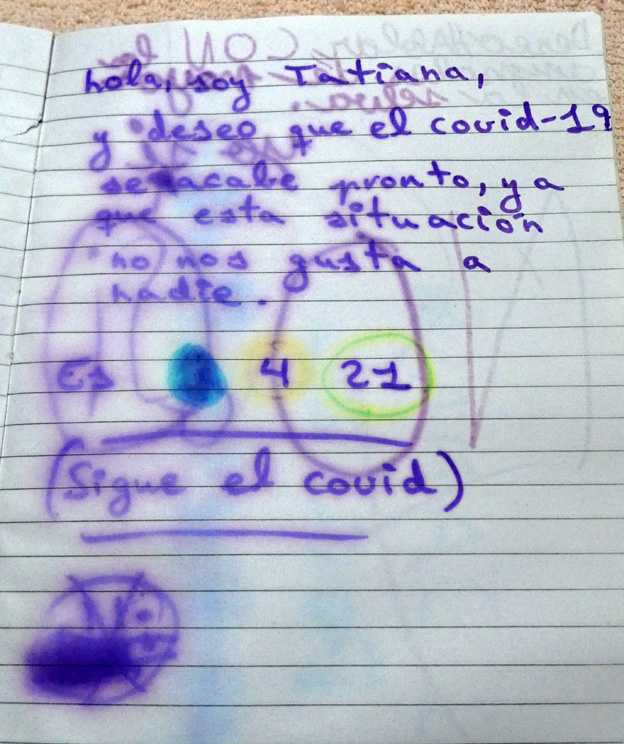 hola, soy Tatiana,
y deseo que el covid-19
se acabe pronto, ya
que esta situación
no nos gusta a
nadie.
Es 4 21
(Sigue el covid)